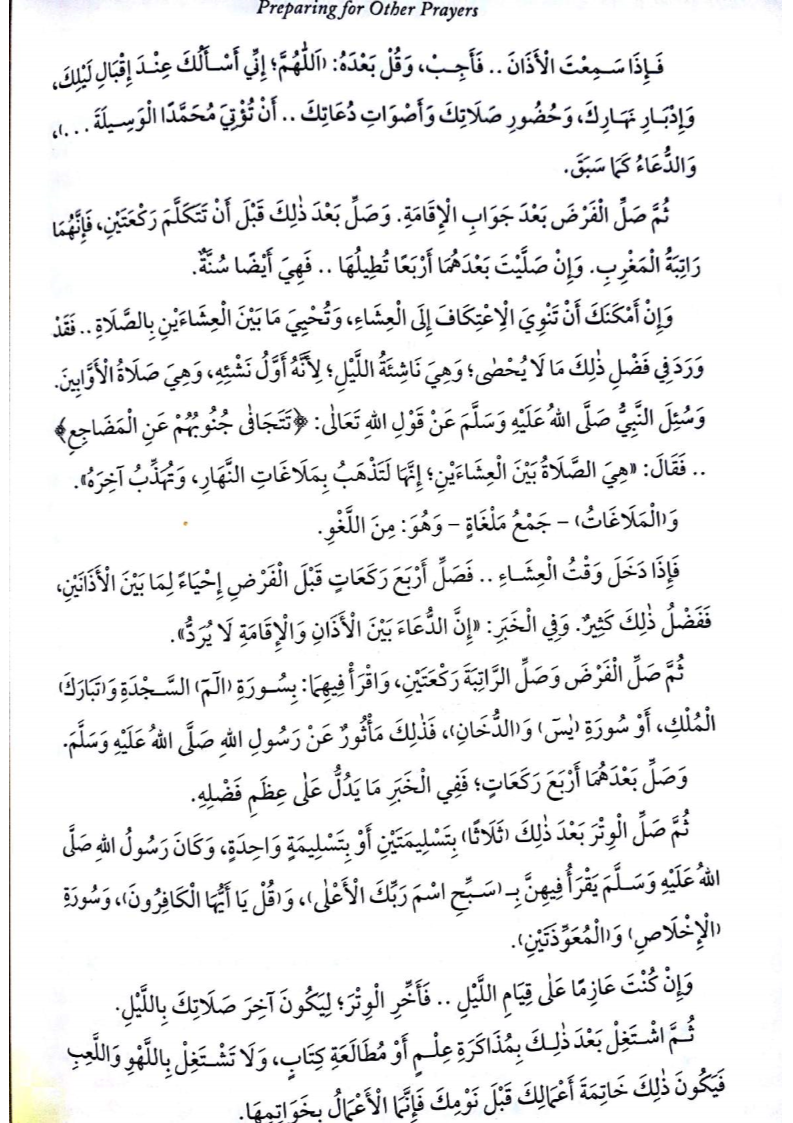 Preparing for Other Prayers
فَإِذَا سَمِعْتَ الْأَذَانَ .. فَأَجِبْ، وَقُلْ بَعْدَهُ: (اَللّٰهُمَّ؛ إِنِّي أَسْأَلُكَ عِنْدَ إِقْبَالِ لَيْلِكَ،
وَإِدْبَارِ نَهَارِكَ، وَحُضُورِ صَلَاتِكَ وَأَصْوَاتِ دُعَاتِكَ .. أَنْ تُؤْتِيَ مُحَمَّدًا الْوَسِيلَةَ ...)،
وَالدُّعَاءُ كَمَا سَبَقَ.
ثُمَّ صَلِّ الْفَرْضَ بَعْدَ جَوَابِ الْإِقَامَةِ. وَصَلِّ بَعْدَ ذٰلِكَ قَبْلَ أَنْ تَتَكَلَّمَ رَكْعَتَيْنِ، فَإِنَّهُمَا
رَاتِبَةُ الْمَغْرِبِ. وَإِنْ صَلَّيْتَ بَعْدَهُمَا أَرْبَعًا تُطِيلُهَا .. فَهِيَ أَيْضًا سُنَّةٌ.
وَإِنْ أَمْكَنَكَ أَنْ تَنْوِيَ الْاِعْتِكَافَ إِلَى الْعِشَاءِ، وَتُحْيِيَ مَا بَيْنَ الْعِشَاءَيْنِ بِالصَّلَاةِ .. فَقَدْ
وَرَدَ فِي فَضْلِ ذٰلِكَ مَا لَا يُحْصٰى؛ وَهِيَ نَاشِئَةُ اللَّيْلِ؛ لِأَنَّهُ أَوَّلُ نَشْئِهِ، وَهِيَ صَلَاةُ الْأَوَّابِينَ.
وَسُئِلَ النَّبِيُّ صَلَّى اللهُ عَلَيْهِ وَسَلَّمَ عَنْ قَوْلِ اللهِ تَعَالٰى: ﴿تَتَجَافٰى جُنُوبُهُمْ عَنِ الْمَضَاجِعِ﴾
.. فَقَالَ: «هِيَ الصَّلَاةُ بَيْنَ الْعِشَاءَيْنِ؛ إِنَّهَا لَتَذْهَبُ بِمَلَاغَاتِ النَّهَارِ، وَتُهَذِّبُ آخِرَهُ».
وَ(الْمَلَاغَاتُ) – جَمْعُ مَلْغَاةٍ – وَهُوَ: مِنَ اللَّغْوِ.
فَإِذَا دَخَلَ وَقْتُ الْعِشَاءِ .. فَصَلِّ أَرْبَعَ رَكَعَاتٍ قَبْلَ الْفَرْضِ إِحْيَاءً لِمَا بَيْنَ الْأَذَانَيْنِ،
فَفَضْلُ ذٰلِكَ كَثِيرٌ. وَفِي الْخَبَرِ: «إِنَّ الدُّعَاءَ بَيْنَ الْأَذَانِ وَالْإِقَامَةِ لَا يُرَدُّ».
ثُمَّ صَلِّ الْفَرْضَ وَصَلِّ الرَّاتِبَةَ رَكْعَتَيْنِ، وَاقْرَأْ فِيهِمَا: بِسُورَةِ (الٓمٓ) السَّجْدَةِ وَ(تَبَارَكَ)
الْمُلْكِ، أَوْ سُورَةِ (يٰسٓ) وَ(الدُّخَانِ)، فَذٰلِكَ مَأْثُورٌ عَنْ رَسُولِ اللهِ صَلَّى اللهُ عَلَيْهِ وَسَلَّمَ.
وَصَلِّ بَعْدَهُمَا أَرْبَعَ رَكَعَاتٍ؛ فَفِي الْخَبَرِ مَا يَدُلُّ عَلٰى عِظَمِ فَضْلِهِ.
ثُمَّ صَلِّ الْوِتْرَ بَعْدَ ذٰلِكَ (ثَلَاثًا) بِتَسْلِيمَتَيْنِ أَوْ بِتَسْلِيمَةٍ وَاحِدَةٍ، وَكَانَ رَسُولُ اللهِ صَلَّى
اللهُ عَلَيْهِ وَسَلَّمَ يَقْرَأُ فِيهِنَّ بِـ (سَبِّحِ اسْمَ رَبِّكَ الْأَعْلٰى)، وَ(قُلْ يَا أَيُّهَا الْكَافِرُونَ)، وَسُورَةِ
(الْإِخْلَاصِ) وَ(الْمُعَوِّذَتَيْنِ).
وَإِنْ كُنْتَ عَازِمًا عَلٰى قِيَامِ اللَّيْلِ .. فَأَخِّرِ الْوِتْرَ؛ لِيَكُونَ آخِرَ صَلَاتِكَ بِاللَّيْلِ.
ثُمَّ اشْتَغِلْ بَعْدَ ذٰلِكَ بِمُذَاكَرَةِ عِلْمٍ أَوْ مُطَالَعَةِ كِتَابٍ، وَلَا تَشْتَغِلْ بِاللَّهْوِ وَاللَّعِبِ
فَيَكُونَ ذٰلِكَ خَاتِمَةَ أَعْمَالِكَ قَبْلَ نَوْمِكَ فَإِنَّمَا الْأَعْمَالُ بِخَوَاتِمِهَا.